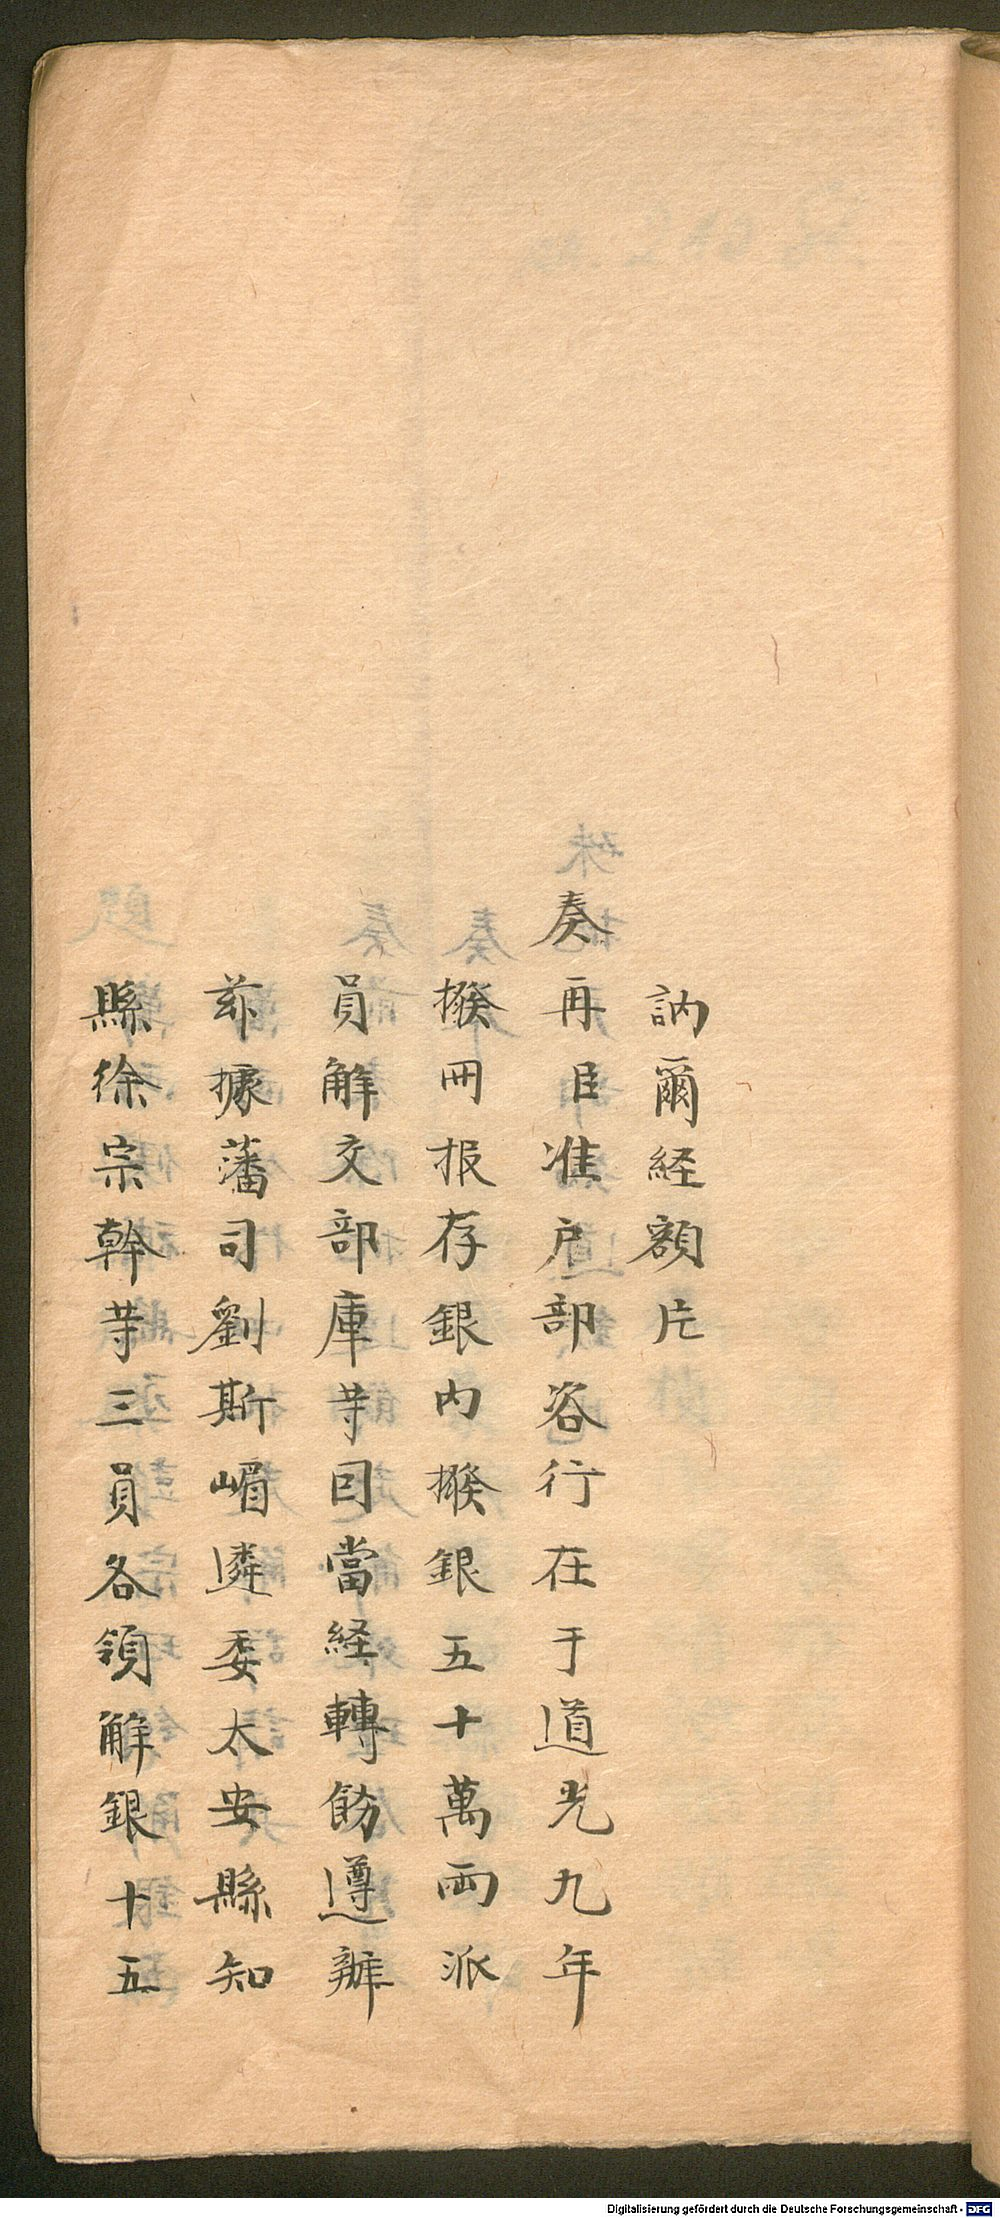 訥爾経額片
奏再臣准户部咨行在于道光九年
撥冊报存銀内撥銀五十萬両派
員解交部庫䓁因當経轉飭遵辦
茲據藩司劉斯嵋遴委太安縣知
縣徐宗幹䓁三員各領解銀十五
Digitalisierung gefördert durch die Deutsche Forschungsgemeinschaft - DFG